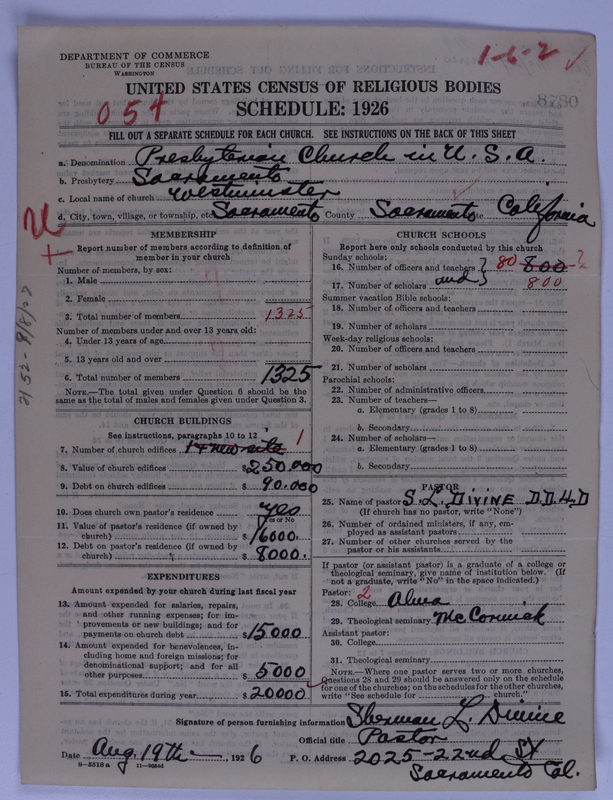 DEPARTMENT OF COMMERCE
BUREAU OF THE CENSUS
WASHINGTON
1-6-2 ✓
UNITED STATES CENSUS OF RELIGIOUS BODIES
SCHEDULE: 1926
054
8780
FILL OUT A SEPARATE SCHEDULE FOR EACH CHURCH. SEE INSTRUCTIONS ON THE BACK OF THIS SHEET
a. Denomination Presbyterian Church in U. S. A.
b. Presbytery Sacramento
c. Local name of church Westminster
d. City, town, village, or township, etc. Sacramento County Sacramento State California
MEMBERSHIP
Report number of members according to definition of
member in your church
Number of members, by sex:
1. Male
2. Female
3. Total number of members 1325
Number of members under and over 13 years old:
4. Under 13 years of age
5. 13 years old and over
6. Total number of members 1325
NOTE.—The total given under Question 6 should be the
same as the total of males and females given under Question 3.
CHURCH BUILDINGS
See instructions, paragraphs 10 to 12
7. Number of church edifices 1+new site 1
8. Value of church edifices $250.000
9. Debt on church edifices $90.000
10. Does church own pastor's residence yes
Yes or No
11. Value of pastor's residence (if owned by
church) $16000.
12. Debt on pastor's residence (if owned by
church) $8000.
EXPENDITURES
Amount expended by your church during last fiscal year
13. Amount expended for salaries, repairs,
and other running expenses; for im-
provements or new buildings; and for
payments on church debt $15000
14. Amount expended for benevolences, in-
cluding home and foreign missions; for
denominational support; and for all
other purposes $5000
15. Total expenditures during year $20000
CHURCH SCHOOLS
Report here only schools conducted by this church
Sunday schools:
16. Number of officers and teachers } 80 800
and
17. Number of scholars } 800
Summer vacation Bible schools:
18. Number of officers and teachers
19. Number of scholars
Week-day religious schools:
20. Number of officers and teachers
21. Number of scholars
Parochial schools:
22. Number of administrative officers
23. Number of teachers—
a. Elementary (grades 1 to 8)
b. Secondary
24. Number of scholars—
a. Elementary (grades 1 to 8)
b. Secondary
PASTOR
25. Name of pastor S. L. DIVINE D.D.
(If church has no pastor, write "None")
26. Number of ordained ministers, if any, em-
ployed as assistant pastors
27. Number of other churches served by the
pastor or his assistants
If pastor (or assistant pastor) is a graduate of a college or
theological seminary, give name of institution below. (If
not a graduate, write "No" in the space indicated.)
Pastor: 2
28. College Alma
29. Theological seminary McCormick
Assistant pastor:
30. College
31. Theological seminary
NOTE.—Where one pastor serves two or more churches,
Questions 28 and 29 should be answered only on the schedule
for one of the churches; on the schedules for the other churches,
write "See schedule for church."
Signature of person furnishing information Sherman L. Divine
Official title Pastor
Date Aug. 19th, 1926 P. O. Address 2025-22nd St
Sacramento Cal.
8—5518 a